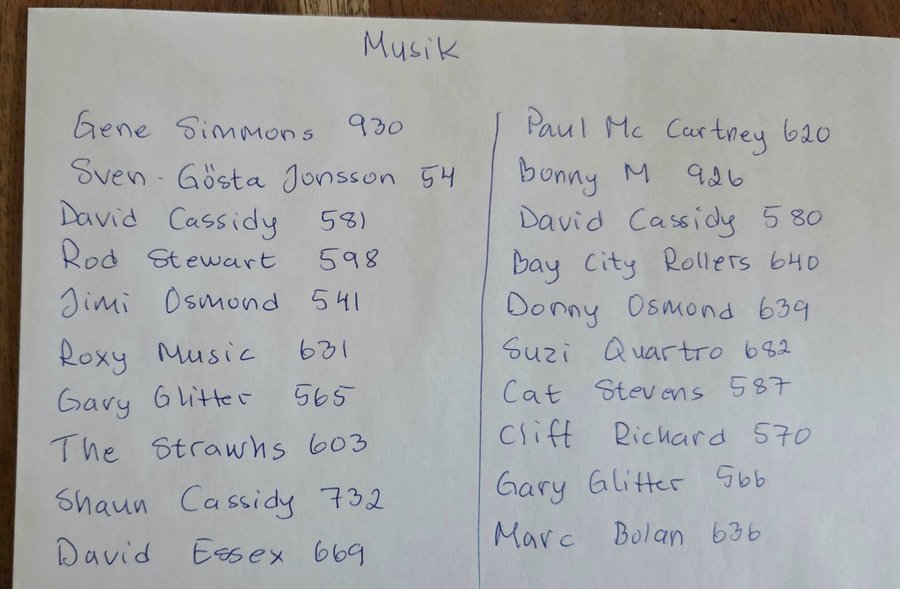 Musik
Gene Simmons 930
Sven-Gösta Jonsson 54
David Cassidy 581
Rod Stewart 598
Jimi Osmond 541
Roxy Music 631
Gary Glitter 565
The Strawhs 603
Shaun Cassidy 732
David Essex 669
Paul Mc Cartney 620
Bonny M 926
David Cassidy 580
Bay City Rollers 640
Donny Osmond 639
Suzi Quartro 682
Cat Stevens 587
Cliff Richard 570
Gary Glitter 566
Marc Bolan 636